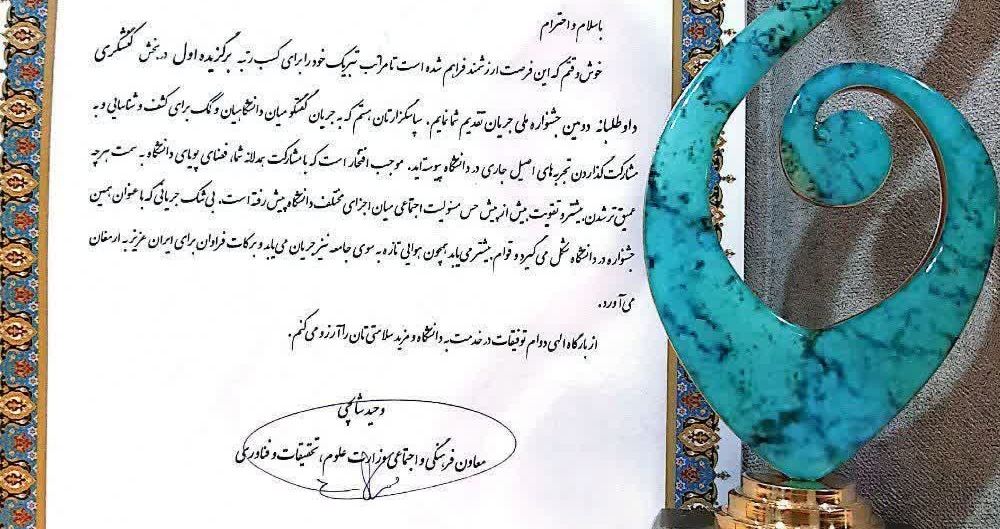 باسلام و احترام
خوش‌وقتم که این فرصت ارزشمند فراهم شده است تا مراتب تبریک خود را برای کسب رتبه برگزیده اول در بخش کنشگری
داوطلبانه دومین جشنواره ملی جریان تقدیم شما نمایم. سپاسگزارتان هستم که به جریان گفتگو میان دانشگاهیان و کمک برای کشف و شناسایی و به
مشارکت گذاردن تجربه های اصیل جاری در دانشگاه پیوسته‌اید. موجب افتخار است که با مشارکت همدلانه شما، فضای پویای دانشگاه به سمت هرچه
عمیق‌تر شدن بیشتر و تقویت بیش از پیش حس مسئولیت اجتماعی میان اجزای مختلف دانشگاه پیش رفته است. بی شک جریانی که با عنوان همین
جشنواره در دانشگاه شکل می گیرد و قوام بیشتر می یابد همچون هوایی تازه به سوی جامعه نیز جریان می یابد و برکات فراوان برای ایران عزیز به ارمغان
می آورد.
از بارگاه الهی دوام توفیقات در خدمت به دانشگاه و مزید سلامتی تان را آرزو می کنم.
وحید شالچی
معاون فرهنگی و اجتماعی وزارت علوم، تحقیقات و فناوری